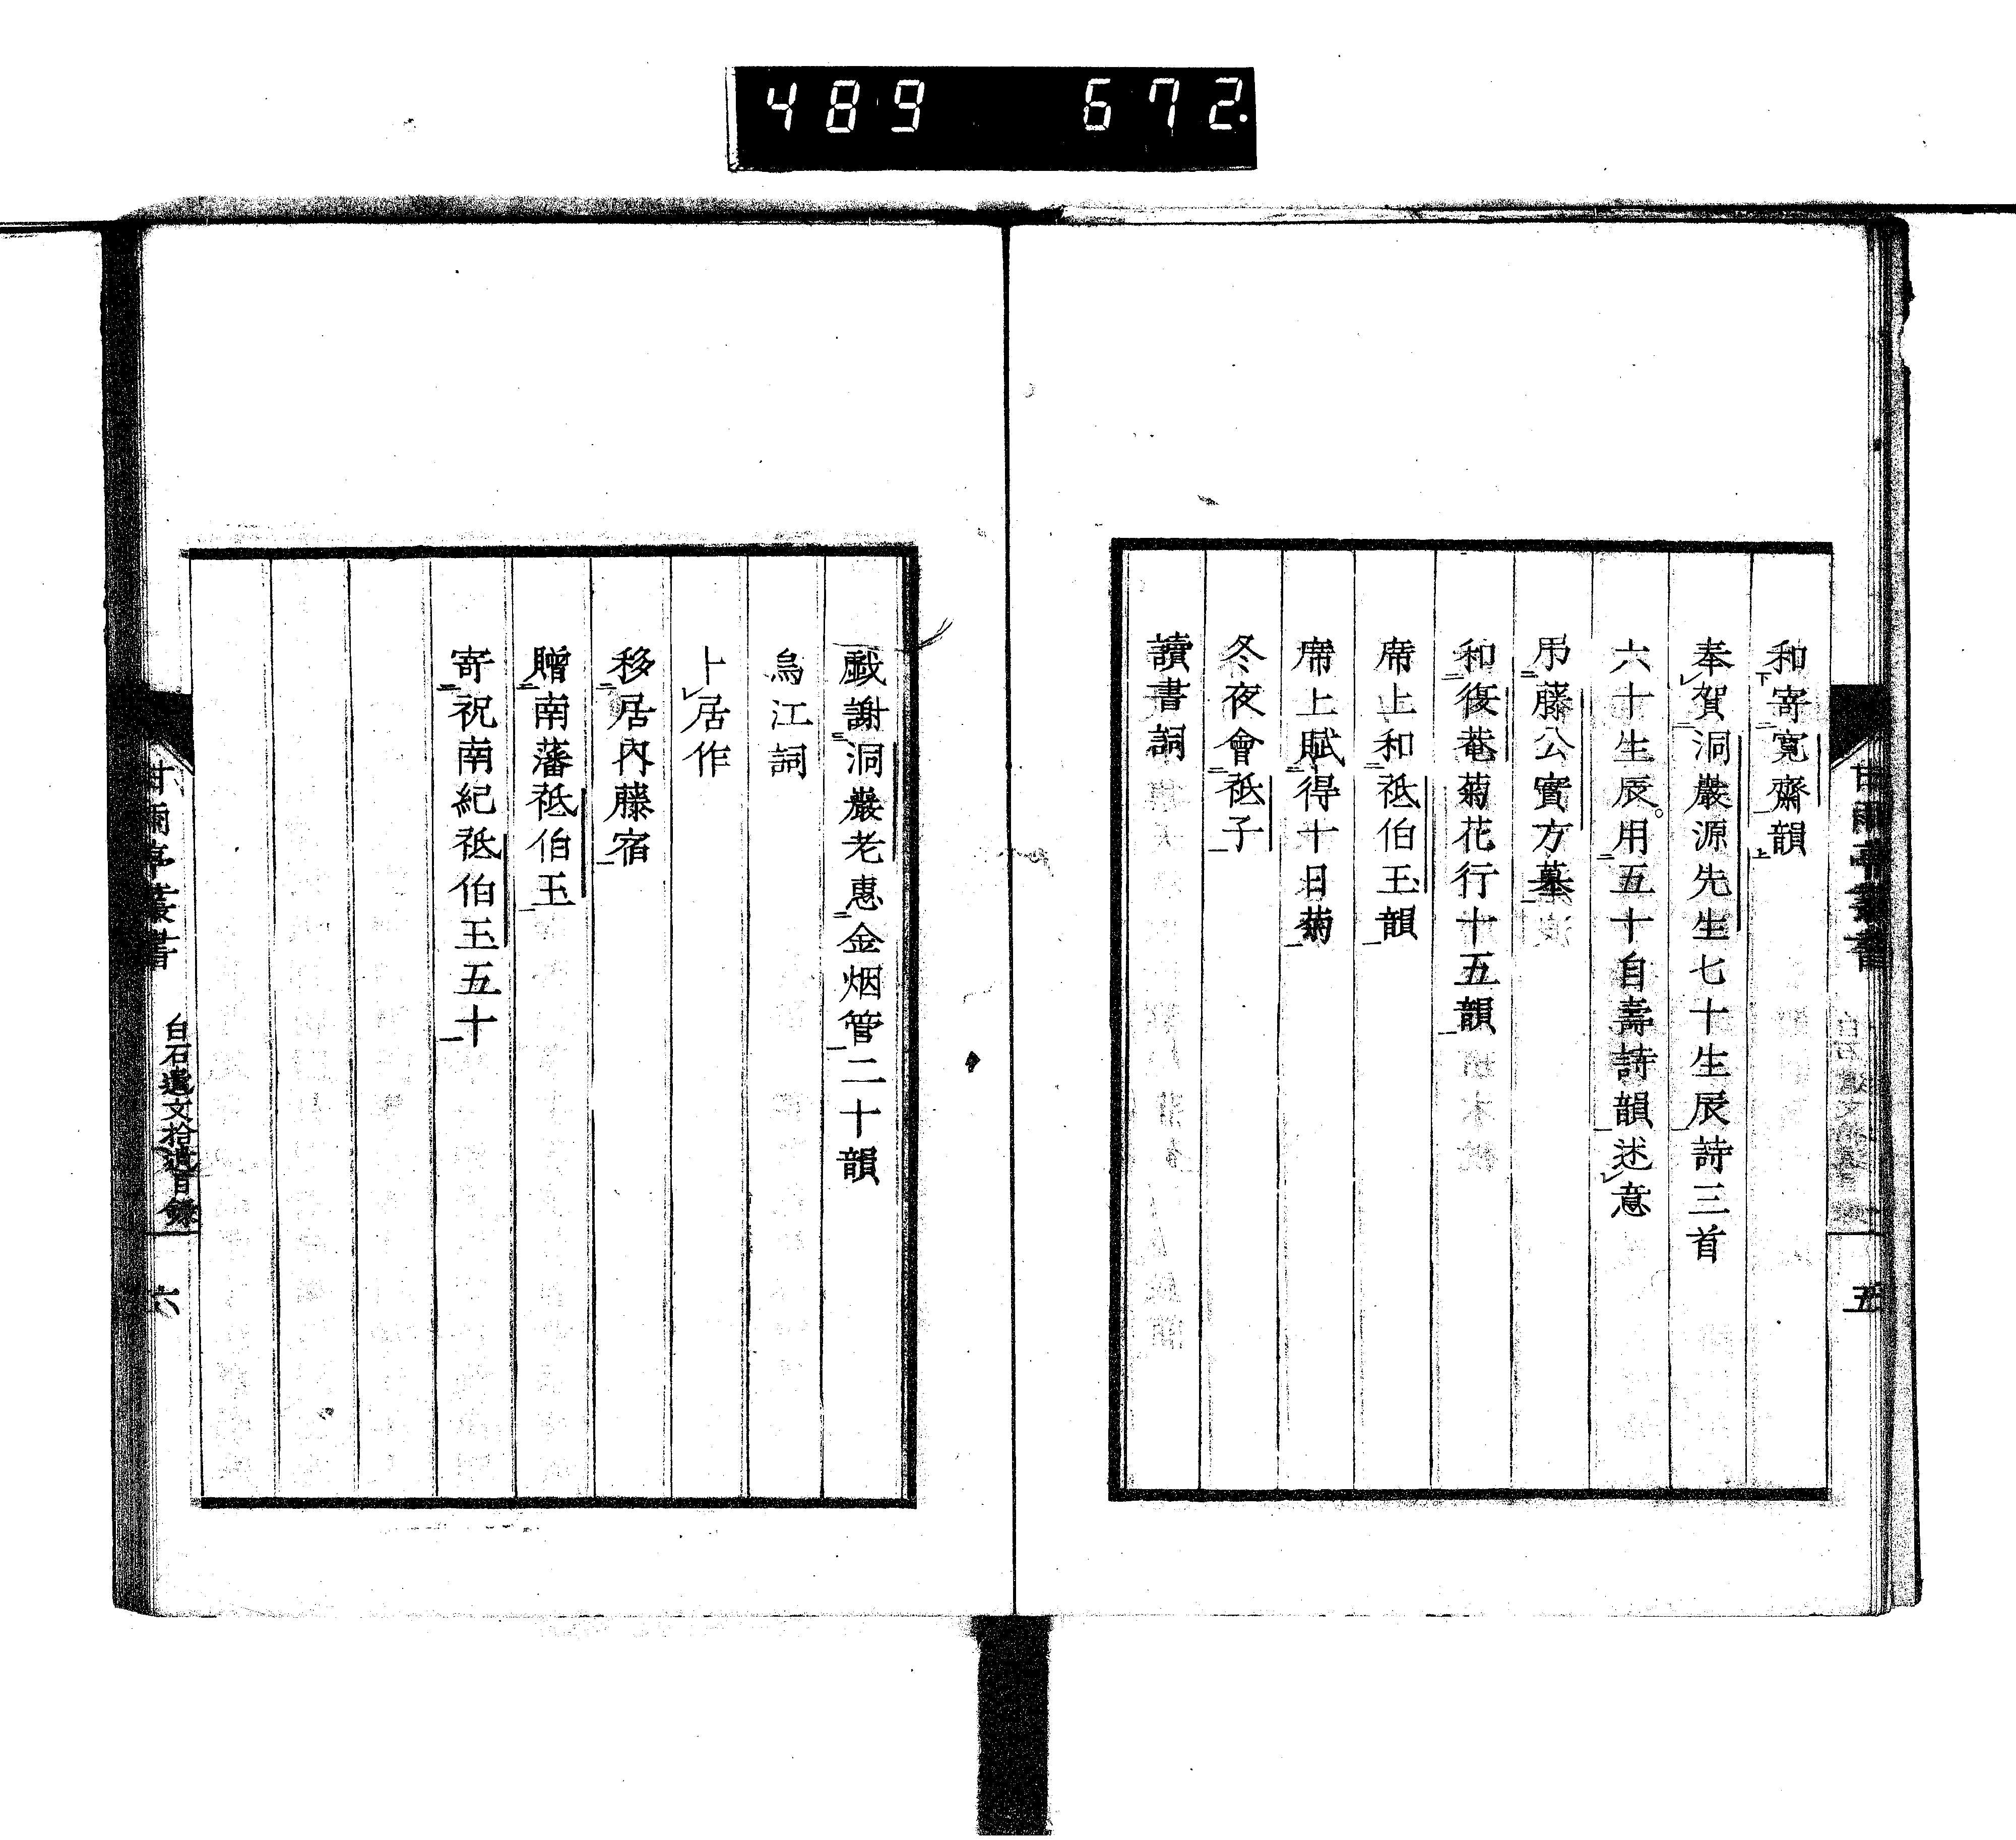 489 672.
和寄寛齋韻
奉賀洞巖源先生七十生辰詩三首
六十生辰。用五十自壽詩韻述意
弔藤公實方墓
和復菴菊花行十五韻
席上和祗伯玉韻
席上賦得十日菊
冬夜會祗子
讀書詞
甘雨亭叢書
五
戲謝洞巖老惠金烟管二十韻
烏江詞
卜居作
移居內藤宿
贈南藩祗伯玉
寄祝南紀祗伯玉五十
甘雨亭叢書
白石遺文拾遺目錄
六